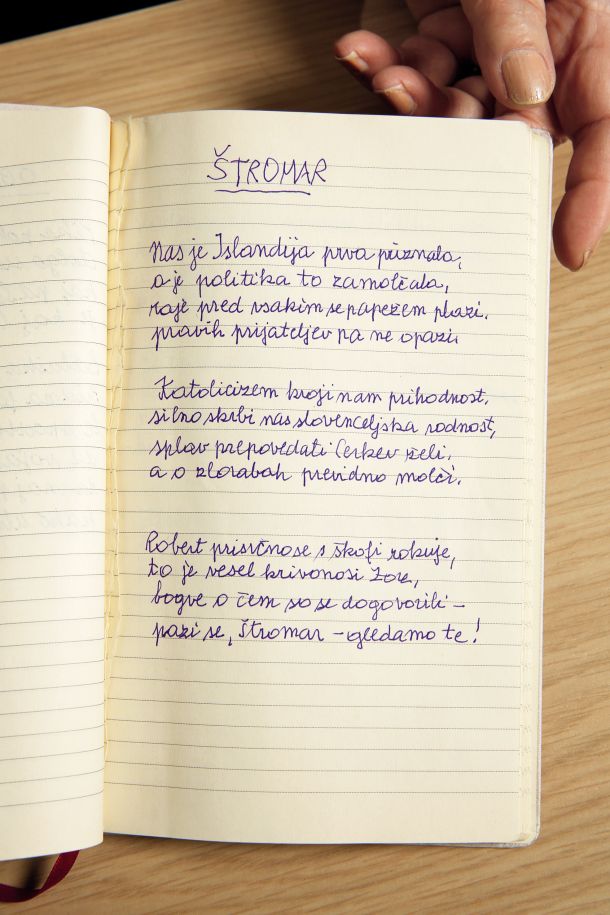 ŠTROMAR
Nas je Islandija prva priznala,
a je politika to zamolčala,
raje pred vsakim se papežem plazi.
pravih prijateljev pa ne opazi.
Katolicizem kroji nam prihodnost,
silno skrbi nas slovenceljska rodnost,
splav prepovedati Cerkev želi,
a o zlorabah previdno molči.
Robert prisrčno se s škofi rokuje,
to je vesel krivonosi
bogve o čem so se dogovorili –
pazi se, Štromar – gledamo te!